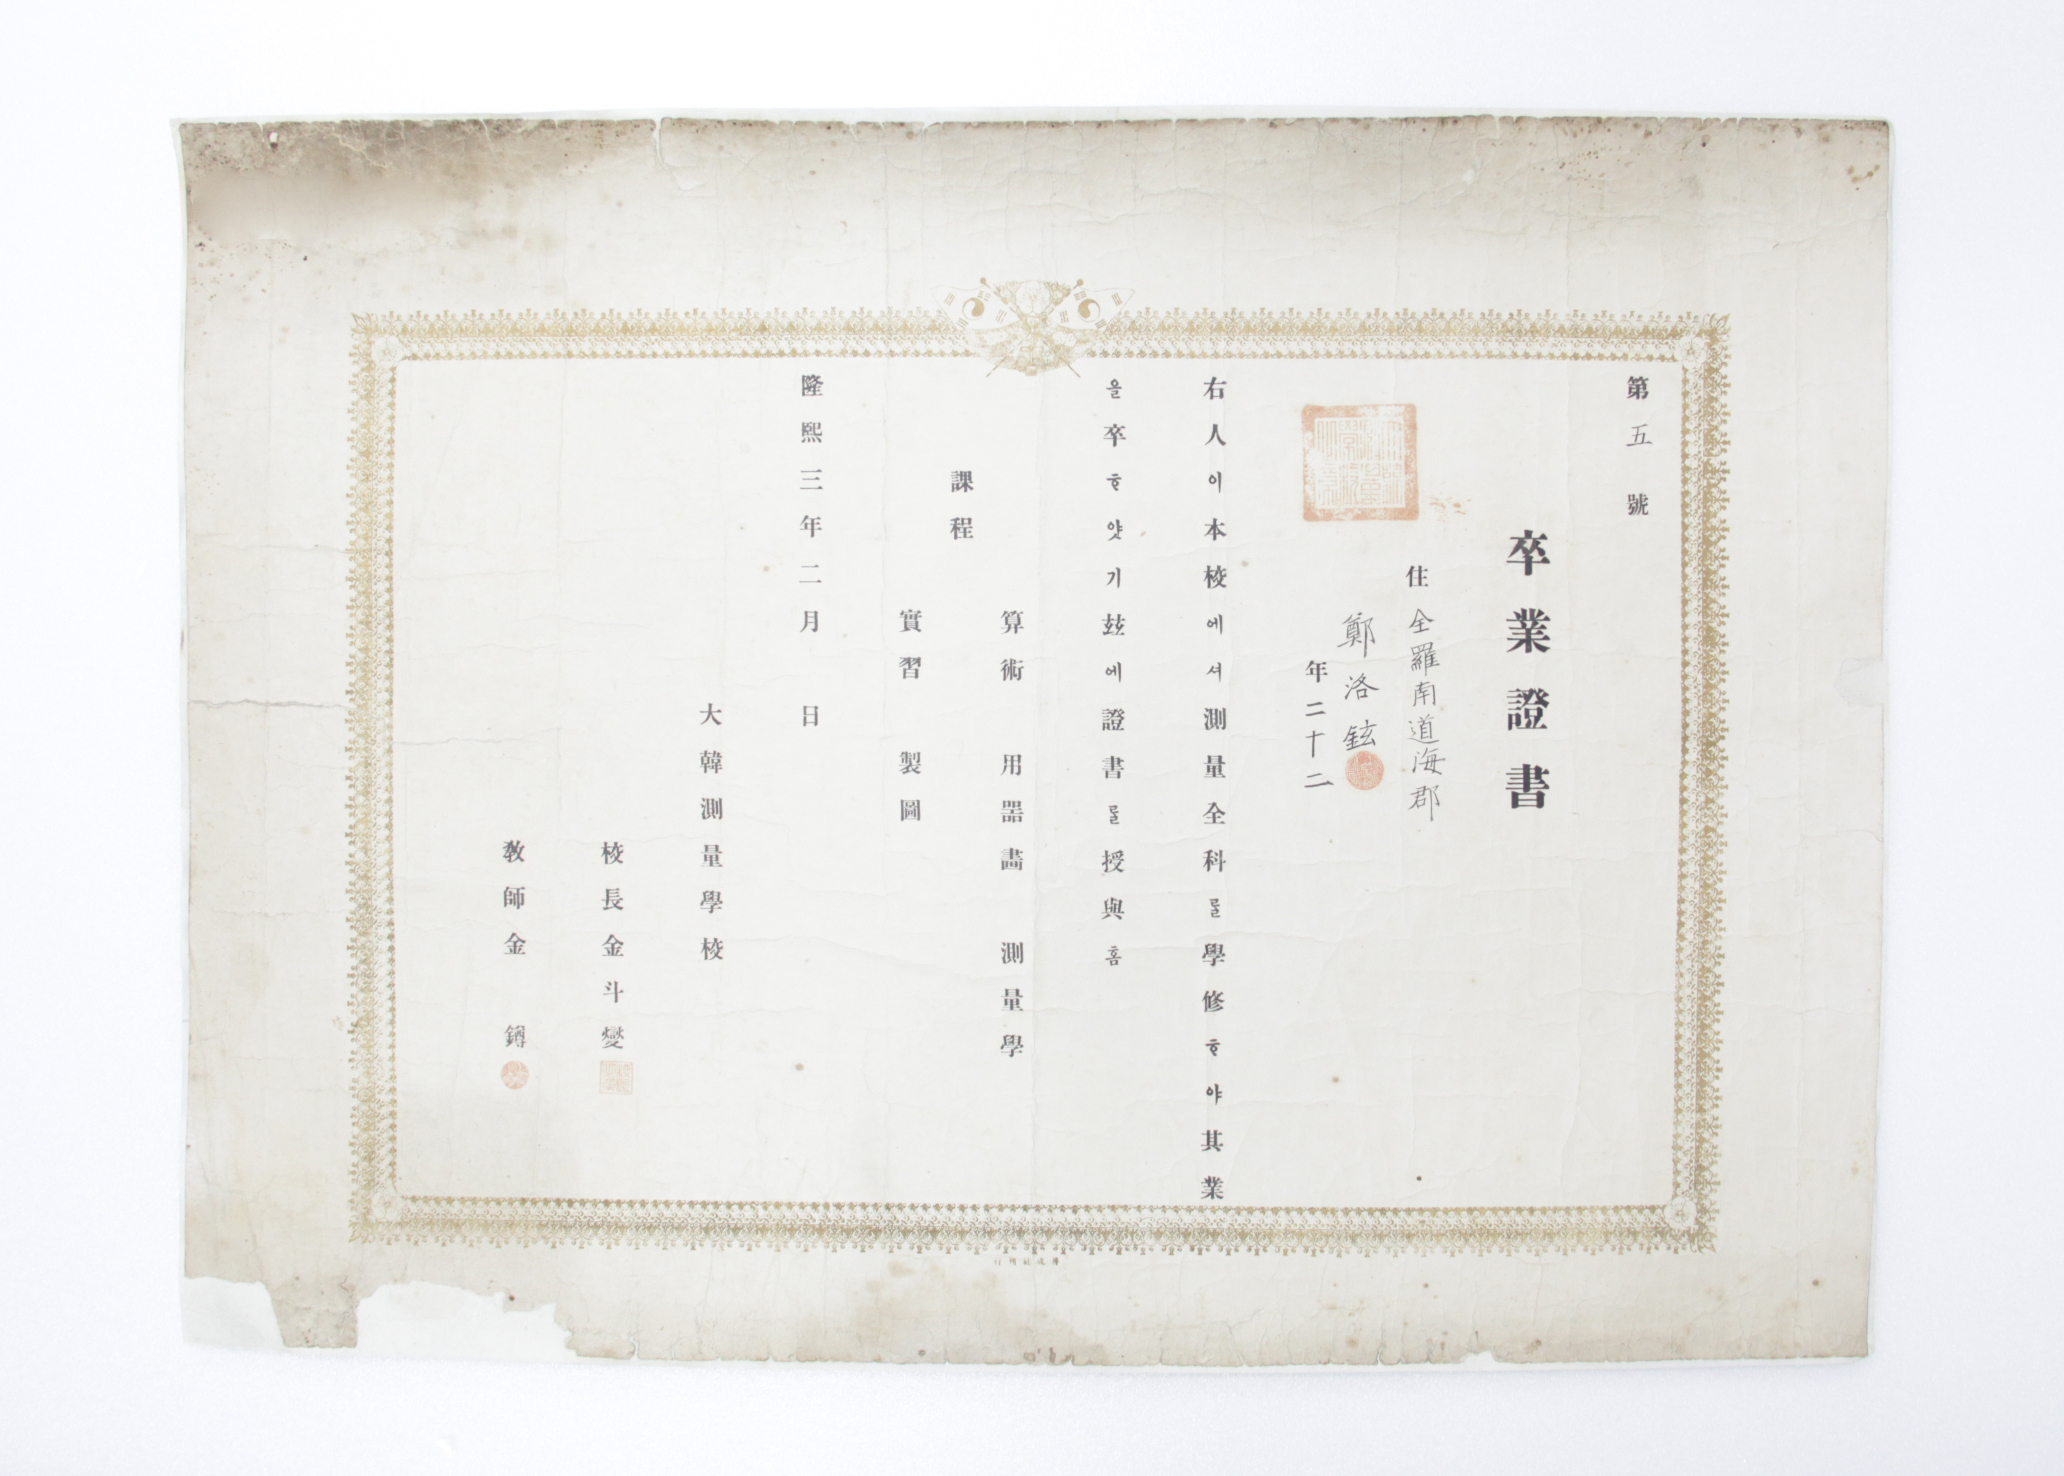 第五號
卒業證書
住全羅南道海郡
鄭洛鉉
年二十二
右人이本校에셔測量全科를學修ᄒᆞ야其業
을卒ᄒᆞ얏기玆에證書를授與홈
課程
算術 用器畵 測量學
實習 製圖
隆熙三年二月 日
大韓測量學校
校長金斗燮
敎師金 鐏